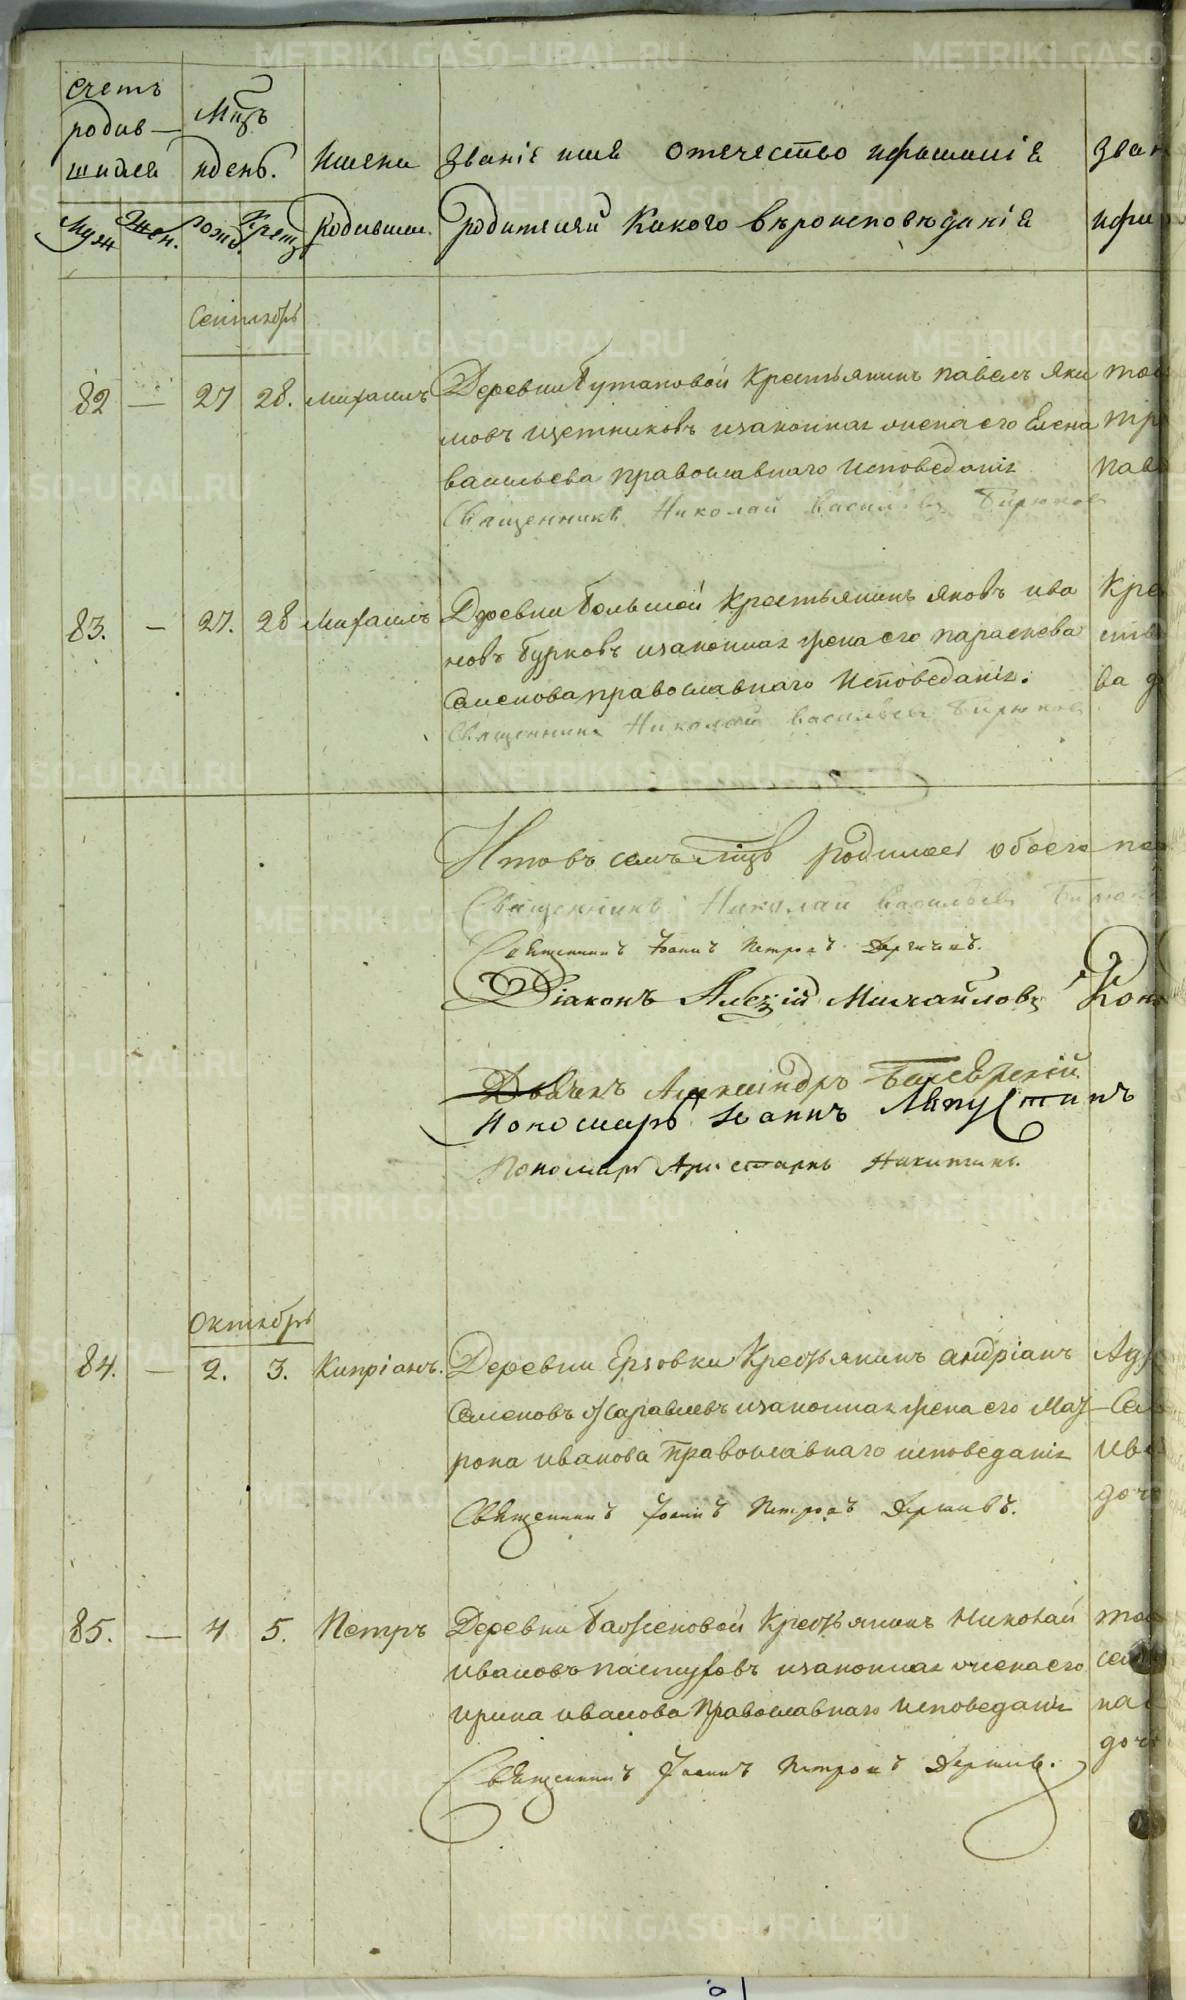 METRIKI.GASO-URAL.RU
Счетъ
родив-
шихся
Муж
Жен.
Мцъ
и день.
рожд.
Крещ
Имена
родивших.
Званіе имя отечество и фамиліа
родителей какого вѣроисповѣданіа
Зван
и фам
Сентябрь
82 — 27 28. Михаилъ
Деревни Бутаковой Крестьянинъ павелъ Яки
мовъ Щетниковъ изаконная жена его Елена
васильева православнаго исповеданія
Священникъ Николай Васильевъ Бирюков
83. — 27. 28 Михаилъ
Деревни Большой Крестьянинъ яковъ ива
новъ Бурковъ изаконная жена его параскева
Семенова православнаго исповеданія.
Священникъ Николай Васильевъ Бирюков
Кре
ва
Итовъ семъ мцѣ родилось обоего по
Священникъ Николай Васильевъ Бирюк
Священникъ Іоаннъ Петровъ
Діаконъ Алексій Михайловъ
Дьячекъ Александръ
Пономарь Іоаннъ Лапустинъ
Пономарь Аристархъ Никитинъ.
Октябрь
84. — 2. 3. Кипріанъ.
Деревни Ерзовки Крестьянинъ андріанъ
Семеновъ изаконная жена его Мат
рона иванова православнаго исповеданія
Священникъ Іоаннъ Петровъ
85. — 4 5. Петръ
Деревни Баженовой Крестьянинъ Николай
ивановъ пастуховъ изаконная жена его
ирина иванова православнаго исповеданія
Священникъ Іоаннъ Петровъ